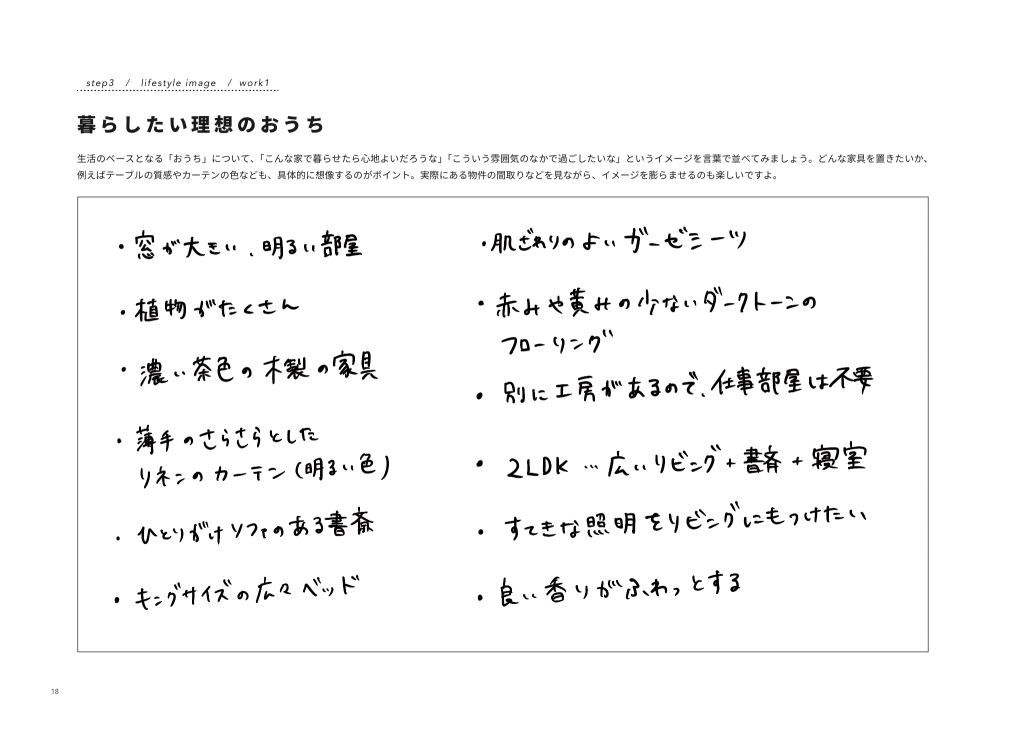 step3 / lifestyle image / work1
暮らしたい理想のおうち
生活のベースとなる「おうち」について、「こんな家で暮らせたら心地よいだろうな」「こういう雰囲気のなかで過ごしたいな」というイメージを言葉で並べてみましょう。どんな家具を置きたいか、
例えばテーブルの質感やカーテンの色なども、具体的に想像するのがポイント。実際にある物件の間取りなどを見ながら、イメージを膨らませるのも楽しいですよ。
・窓が大きい、明るい部屋
・植物がたくさん
・濃い茶色の木製の家具
・薄手のさらさらとした
リネンのカーテン(明るい色)
・ひとりがけソファのある書斎
・キングサイズの広々ベッド
・肌ざわりのよいガーゼシーツ
・赤みや黄みの少ないダークトーンの
フローリング
・別に工房があるので、仕事部屋は不要
・2LDK…広いリビング+書斎+寝室
・すてきな照明をリビングにもつけたい
・良い香りがふわっとする
18